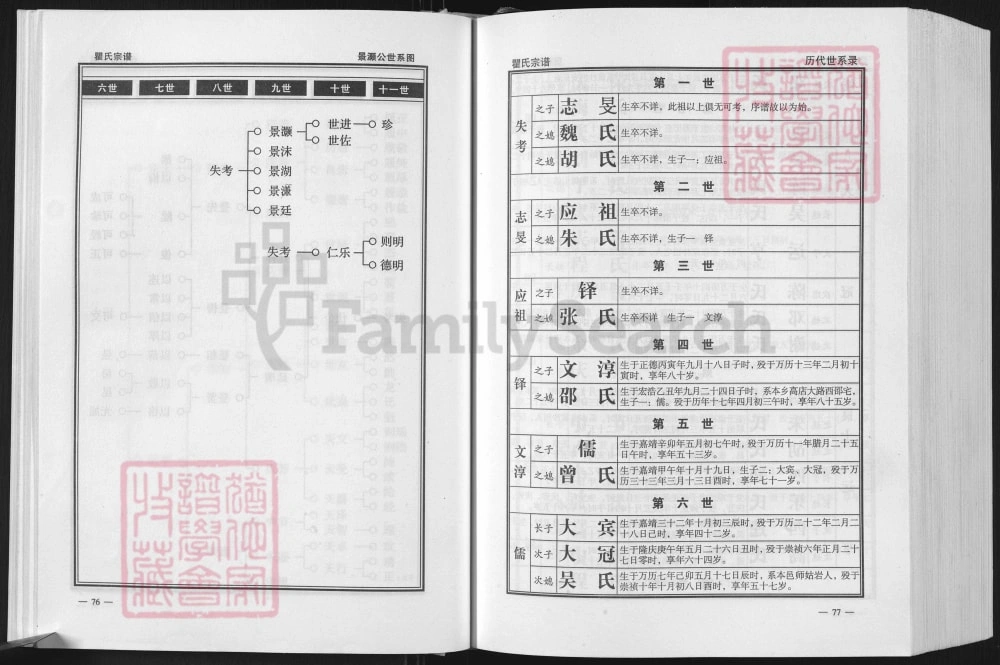 瞿氏宗谱
景灏公世系图
六世 七世 八世 九世 十世 十一世
失考
景灏
世进
珍
世佐
景沫
景湖
景濂
景廷
失考
仁乐
则明
德明
— 76 —
瞿氏宗谱
历代世系录
第一世
失考
之子 志旻 生卒不详，此祖以上俱无可考，序谱故以为始。
之媳 魏氏 生卒不详。
之媳 胡氏 生卒不详，生子一：应祖。
第二世
志旻
之子 应祖 生卒不详。
之媳 朱氏 生卒不详，生子一 铎
第三世
应祖
之子 铎 生卒不详。
之媳 张氏 生卒不详 生子一 文淳
第四世
铎
之子 文淳 生于正德丙寅年九月十八日子时，殁于万历十三年二月初十
寅时，享年八十岁。
之媳 邵氏 生于宏浩乙丑年九月二十四日子时，系本乡高店大路西邵宅，
生子一：儒。殁于历年十七年四月初三午时，享年八十五岁。
第五世
文淳
之子 儒 生于嘉靖辛卯年五月初七午时，殁于万历十一年腊月二十五
日午时，享年五十三岁。
之媳 曾氏 生于嘉靖甲午年十月十九日，生子二：大宾、大冠，殁于万
历三十三年三月十三日酉时，享年七十一岁。
第六世
儒
长子 大宾 生于嘉靖三十二年十月初三辰时，殁于万历二十二年二月二
十八日己时，享年四十二岁。
次子 大冠 生于隆庆庚午年五月二十六日丑时，殁于崇祯六年正月二十
七日零时，享年六十四岁。
次媳 吴氏 生于万历七年己卯五月十七日辰时，系本邑师姑岩人，殁于
崇祯十年十月初八日酉时，享年五十七岁。
— 77 —
FamilySearch